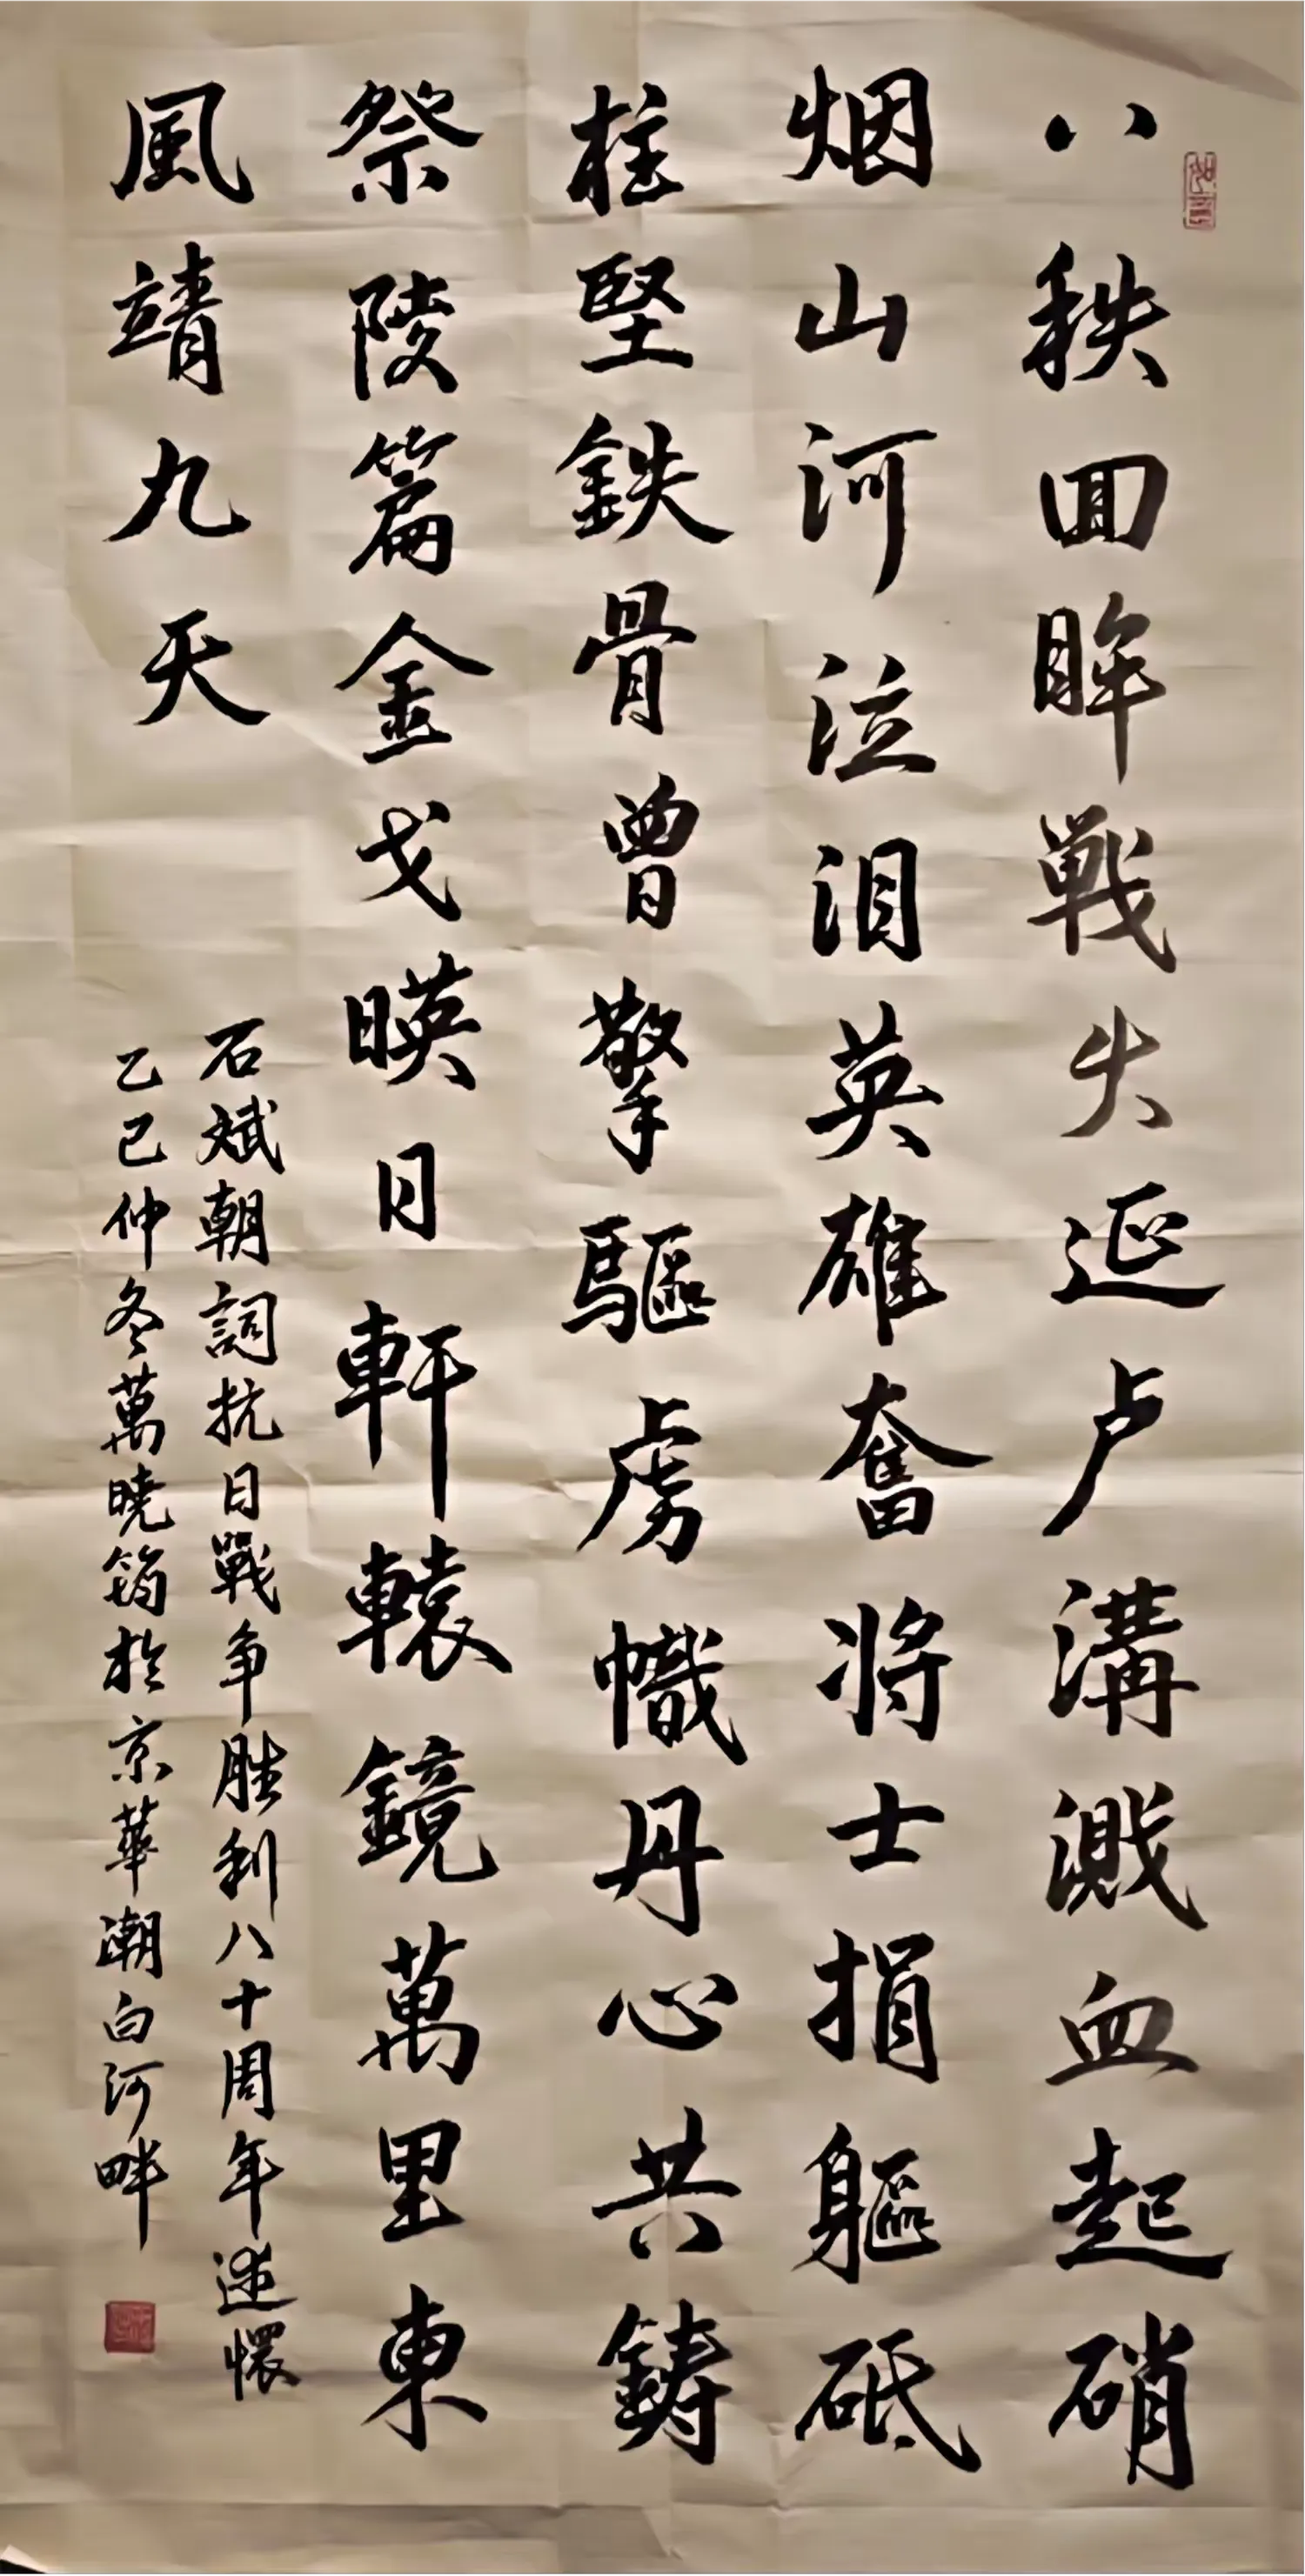 八秩回眸戰火延卢溝溅血起硝
烟山河泣泪英雄奮将士捐軀砥
柱堅鉄骨曾擎驅虏幟丹心共鋳
祭陵篇金戈暎日軒轅鏡萬里東
風靖九天
石斌朝詞抗日戰争勝利八十周年述懷
乙巳仲冬萬曉筠於京華潮白河畔